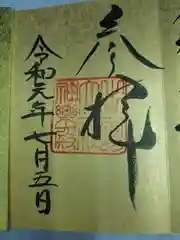 参拝
令和元年七月五日